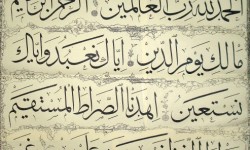 الحمد لله رب العالمين الرحمن الرحيم
مالك يوم الدين إياك نعبد وإياك
نستعين اهدنا الصراط المستقيم